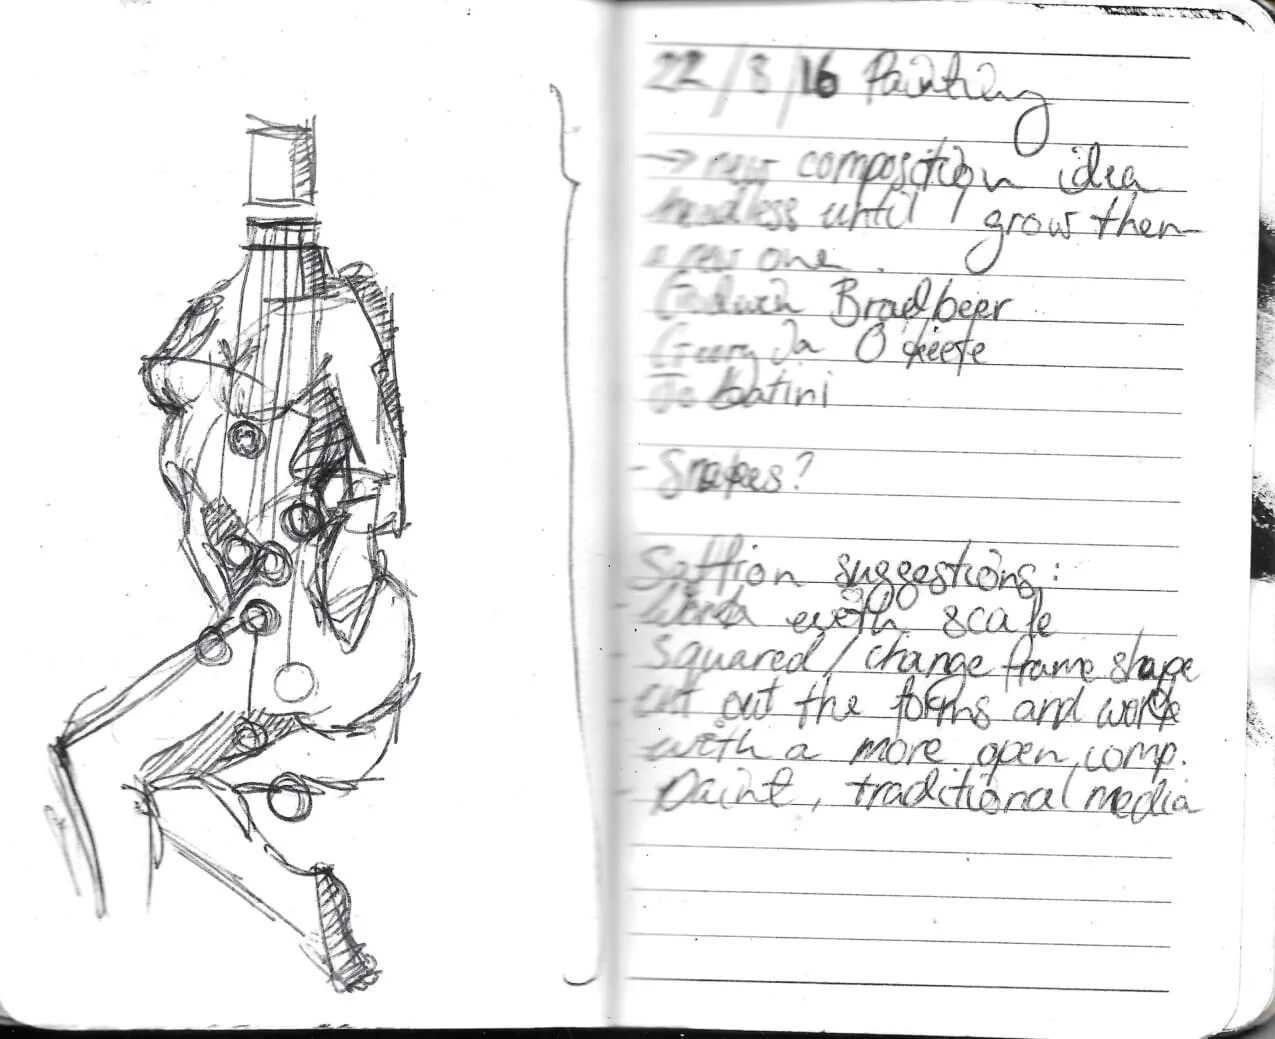 22/8/16 Painting
→ new composition idea
headless until I grow them
a new one.
Godwin Bradbeer
Georgia O'keefe
Jo
- Snakes?
Saffron suggestions:
- Work with scale
- Squared/change frame shape
- cut out the forms and work
with a more open comp.
- paint, traditional media